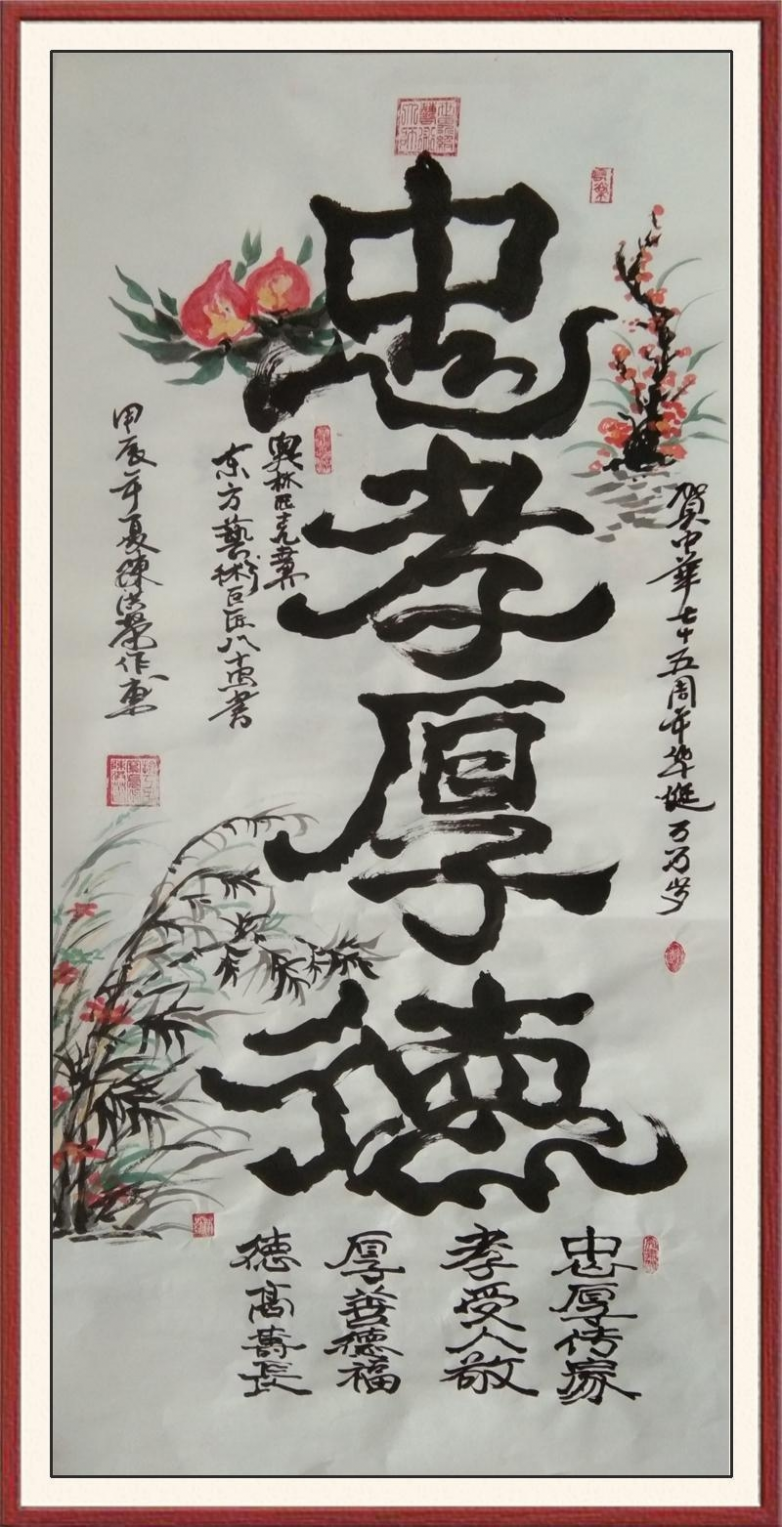 忠孝厚德
贺中华七十五周年华诞万万岁
忠厚传家
孝受人敬
厚善德福
德高寿长
奥林匹克
东方藝術巨匠八十惠書
甲辰年夏陳洪榮作惠